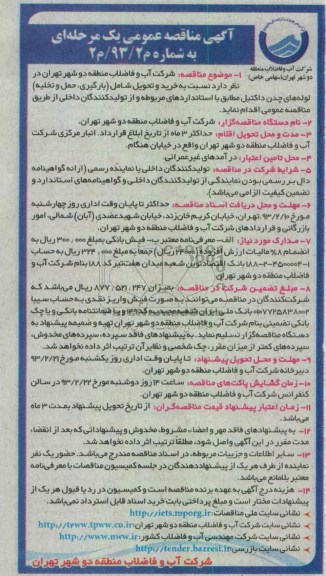 آگهی مناقصه عمومی یک مرحله‌ای
به شماره م۹۳/۲/م۲
شرکت آب و فاضلاب منطقه
دو شهر تهران (سهامی خاص)
۱- موضوع مناقصه: شرکت آب و فاضلاب منطقه دو شهر تهران در
نظر دارد نسبت به خرید و تحویل شامل (بارگیری، حمل و تخلیه)
لوله‌های چدن داکتیل مطابق با استانداردهای مربوطه و از تولیدکنندگان داخلی از طریق
مناقصه عمومی اقدام نماید.
۲- نام دستگاه مناقصه‌گزار: شرکت آب و فاضلاب منطقه دو شهر تهران.
۳- مدت و محل تحویل اقلام: حداکثر ۳ ماه از تاریخ ابلاغ قرارداد، انبار مرکزی شرکت
آب و فاضلاب منطقه دو شهر تهران واقع در خیابان هنگام.
۴- محل تامین اعتبار: درآمدهای غیرعمرانی.
۵- شرایط شرکت در مناقصه: تولیدکنندگان داخلی یا نماینده رسمی (ارائه گواهینامه
دال بر رسمی بودن نمایندگی از تولیدکنندگان داخلی و گواهینامه‌های استاندارد و
تضمین کیفیت الزامی می‌باشد).
۶- مهلت و محل دریافت اسناد مناقصه: حداکثر تا پایان وقت اداری روز چهارشنبه
مورخ ۹۳/۲/۱۰، تهران، خیابان کریم خان زند، خیابان شهید عضدی (آبان) شمالی، امور
بازرگانی و قراردادهای شرکت آب و فاضلاب منطقه دو شهر تهران.
۷- مدارک مورد نیاز: الف- معرفی‌نامه معتبر ب- فیش بانکی بمبلغ ۳۰۰,۰۰۰ ریال به
انضمام ۸% مالیات ارزش افزوده (۲۴,۰۰۰ ریال) جمعا به مبلغ ۳۲۴,۰۰۰ ریال به حساب
بانک اقتصاد نوین شعبه میدان هفت‌تیر کد ۱۸۸ بنام شرکت آب و
فاضلاب منطقه دو شهر تهران.
۸- مبلغ تضمین شرکت در مناقصه: به میزان ۸۷۷,۵۲۱,۲۴۷ ریال می‌باشد که
شرکت‌کنندگان در مناقصه می‌توانند به صورت فیش واریز نقدی به حساب سیبا
بانک ملی و یا ضمانتنامه بانکی و یا چک
بانکی تضمینی بنام شرکت آب و فاضلاب منطقه دو شهر تهران تهیه و ضمیمه پیشنهاد به
دستگاه مناقصه‌گزار تسلیم نمایند. به پیشنهادهای فاقد سپرده، سپرده‌های مخدوش،
سپرده‌های کمتر از میزان مقرر، چک شخصی و نظایر آن ترتیب اثر داده نخواهد شد.
۹- مهلت و محل تحویل پیشنهاد: تا پایان وقت اداری روز یکشنبه مورخ ۹۳/۲/۲۱
دبیرخانه شرکت آب و فاضلاب منطقه دو شهر تهران.
۱۰- زمان گشایش پاکت‌های مناقصه: ساعت ۱۳ روز دوشنبه مورخ ۹۳/۲/۲۲ در سالن
کنفرانس شرکت آب و فاضلاب منطقه دو شهر تهران.
۱۱- زمان اعتبار پیشنهاد قیمت مناقصه‌گران: از تاریخ تحویل پیشنهاد بمدت ۳ ماه
می‌باشد.
۱۲- به پیشنهادهای فاقد مهر و امضاء، مشروط، مخدوش و پیشنهاداتی که بعد از انقضاء
مدت مقرر در این آگهی واصل شود، مطلقا ترتیب اثر داده نخواهد شد.
۱۳- سایر اطلاعات و جزییات مربوطه، در اسناد مناقصه مندرج می‌باشد. حضور یک نفر
نماینده از طرف هر یک از پیشنهاددهندگان در جلسه کمیسیون مناقصات با معرفی‌نامه
معتبر بلامانع می‌باشد.
۱۴- هزینه درج آگهی به عهده برنده مناقصه است و کمیسیون در رد یا قبول هر یک از
پیشنهادات مختار است و مبلغ پرداختی بابت خرید اسناد قابل استرداد نمی‌باشد.
نشانی سایت ملی مناقصات: http://iets.mporg.ir
نشانی سایت شرکت آب و فاضلاب منطقه دو شهر تهران: http://www.tpww.co.ir
نشانی سایت شرکت مهندسی آب و فاضلاب کشور: http://www.nww.ir
نشانی سایت بازرسی: http://tender.bazresi.ir
شرکت آب و فاضلاب منطقه دو شهر تهران